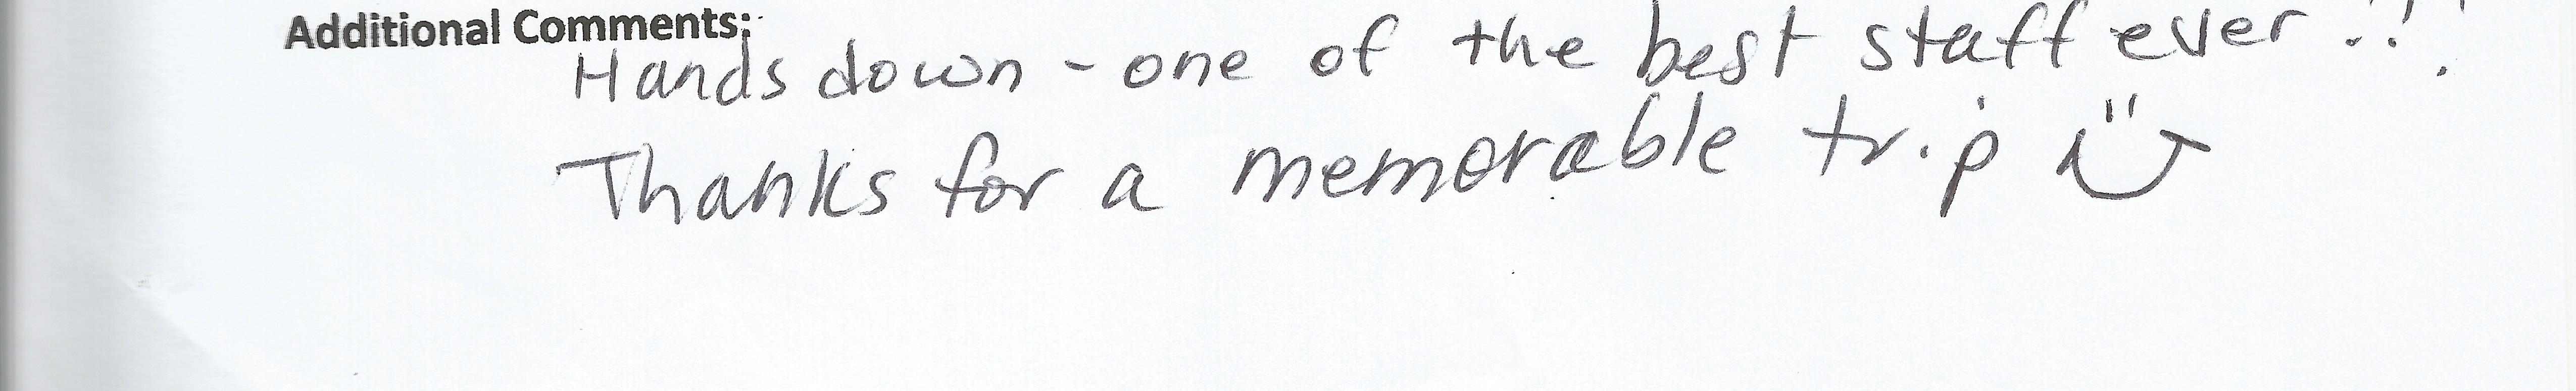 Additional Comments:
Hands down - one of the best staff ever!!!
Thanks for a memorable trip